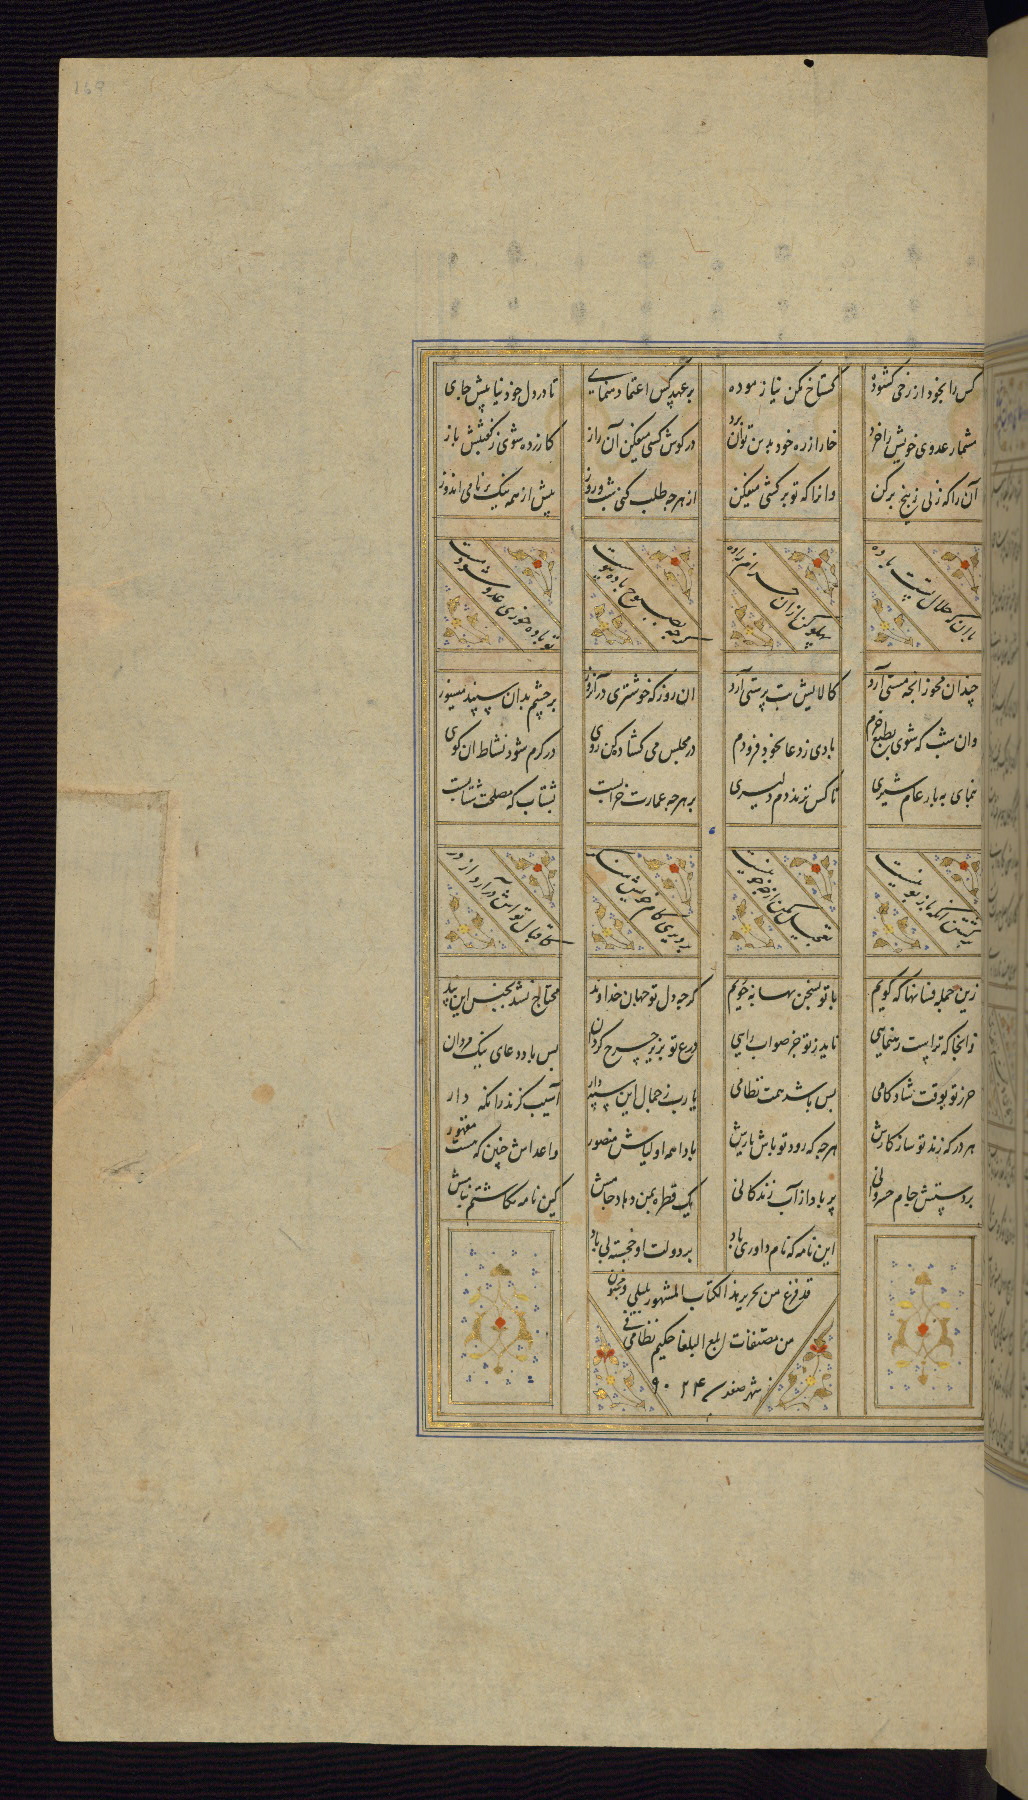 169
کس را بخود از رخ کشوده گستاخ مکن نیازموده بر عهد کس اعتماد منمای تا در دل خود نیابیش جای
مشمار عدوی خویش را خرد خار از ره خود بدین توان برد در گوش کسی میفکن آن راز کازرده شوی ز گفتنش باز
آن را که زنی ز بیخ برکن وانرا که تو برکشی میفکن از هرچه طلب کنی شب و روز بیش از همه نیک نامی اندوز
باران که حلال تست باده پهلو کن از ان حرام زاده گرچه بصبوح باده نوست تو باده خوری عدو شود مست
چندان مخور انچه مستی آرد کالایش بت پرستی آرد ان روز که خوشتری در آن روز بر چشم بدان سپند میسوز
وان شب که شوی بطبع خرم بادی ز دعا بخود فرو دم در مجلس می گشاده کن روی در گرم شود نشاط ان گوی
بنمای به بار عام شیری تا کس نزند دم دلیری بر هرچه عمارت خرابست بشتاب که مصلحت شتابست
زین جمله فسانها که گویم با تو بسخن بهانه جویم گرچه دل تو جهان خداوند محتاج نشد بجنس این پند
زانجا که تراست رهنمایی ناید ز تو جز صواب رایی درع تو بزیر چرخ گردان بس باد دعای نیک مردان
حرز تو بوقت شاد کامی بس باشد همت نظامی یا رب ز جمال این سپهدار آسیب گزند را نگه دار
هر در که زند تو ساز کارش هرجه که رود تو باش یارش بادا همه اولیاش منصور واعداش چنین که هست مقهور
پر باد از آب زندگانی یک قطره بمن دهاد جامش کین نامه نگاشتم بنامش
این نامه که نام داوری باد بر دولت او خجسته پی باد
قد فرغ من تحریر هذا الکتاب المشهور بلیلی و مجنون
من مصنفات ابلغ البلغا حکیم نظامی فی
شهر صفر